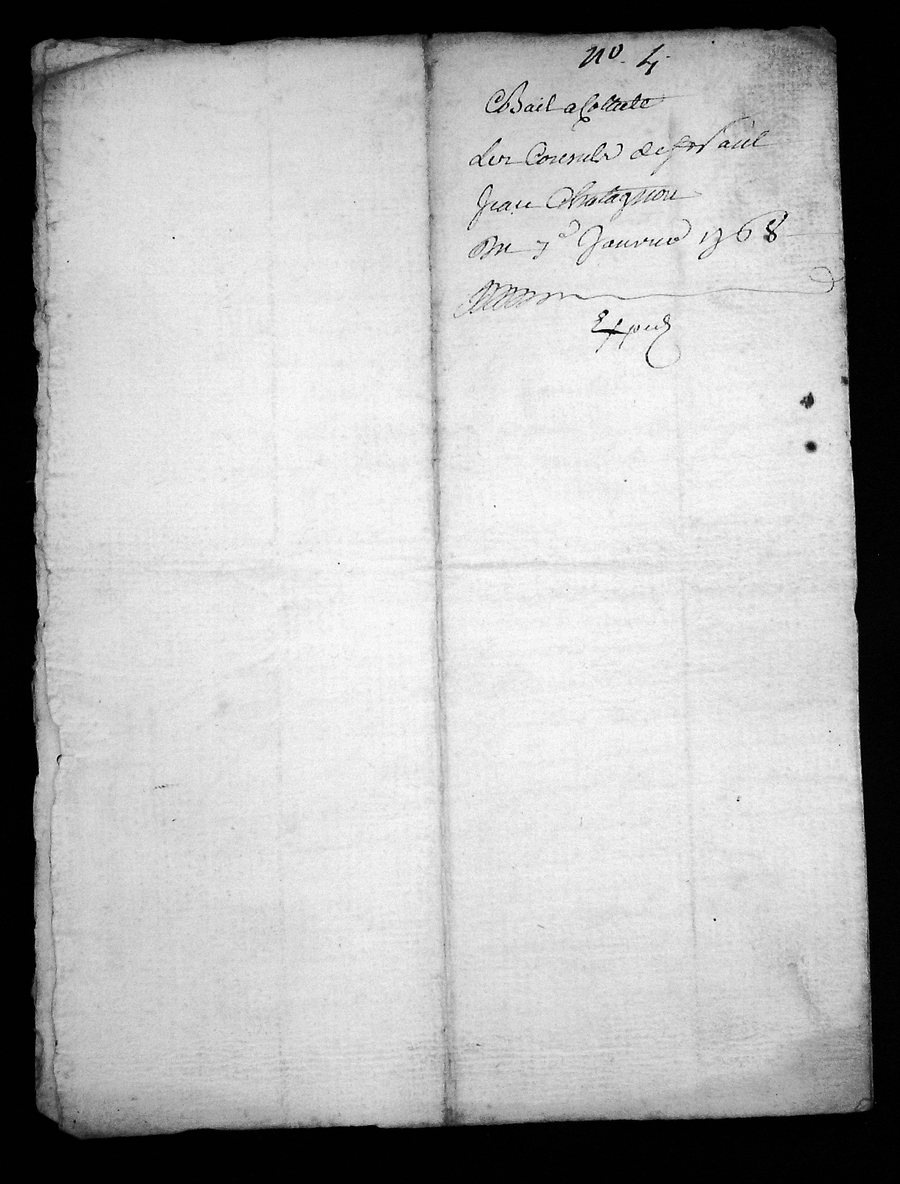 no. 4.
Bail a Collecte
Les Consuls de st paul
Jean Chatagnon
Du 7e Janvier 1768
Exped